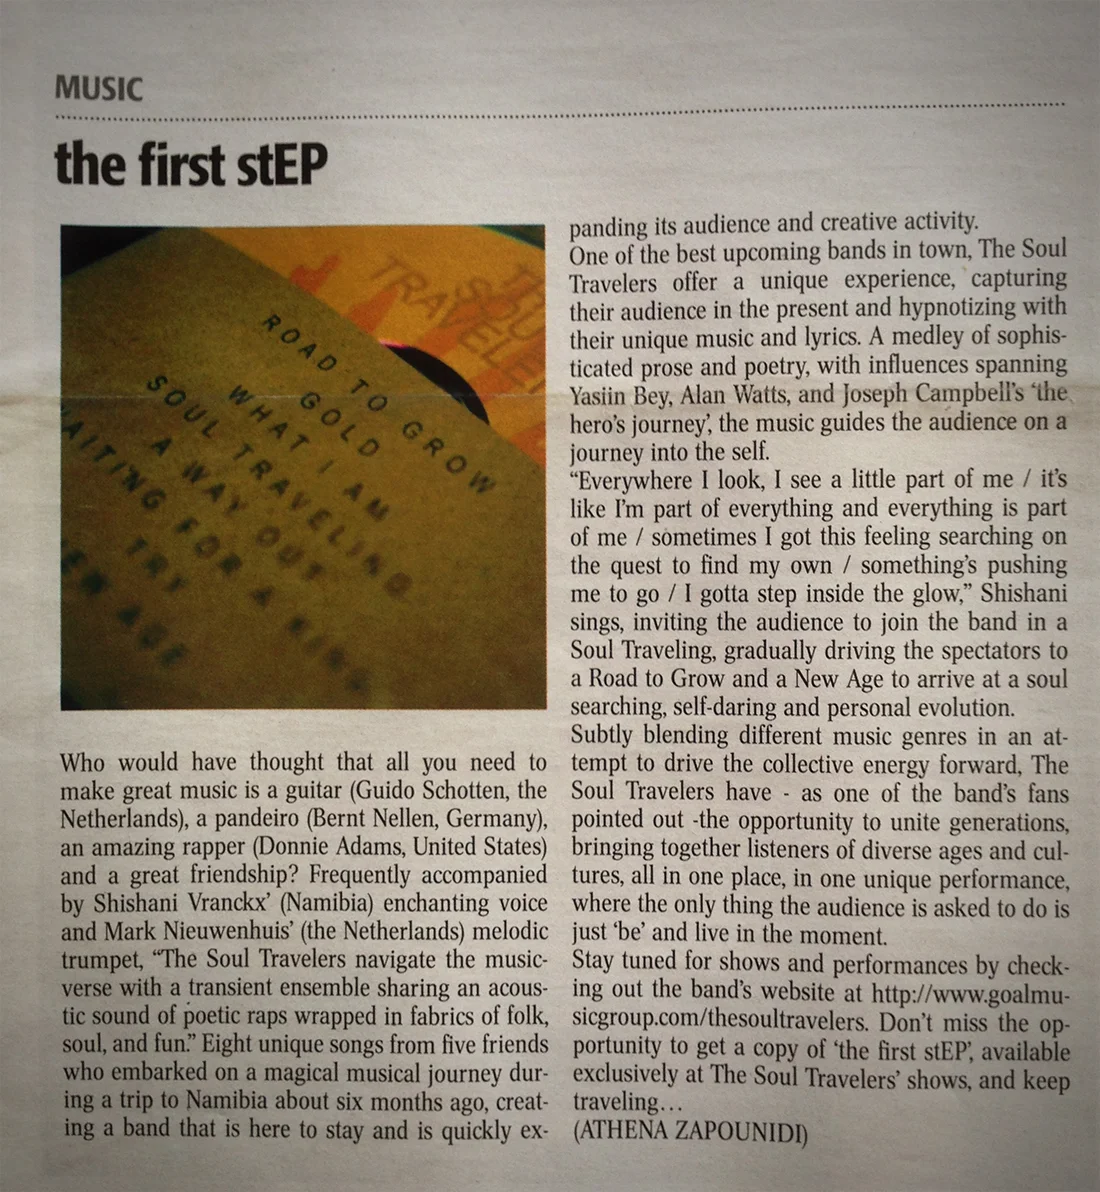 MUSIC
the first stEP
ROAD TO GROW
GOLD
WHAT I AM
SOUL TRAVELING
A WAY OUT
WAITING FOR A
TRY
TRAVELE
SOU
Who would have thought that all you need to
make great music is a guitar (Guido Schotten, the
Netherlands), a pandeiro (Bernt Nellen, Germany),
an amazing rapper (Donnie Adams, United States)
and a great friendship? Frequently accompanied
by Shishani Vranckx’ (Namibia) enchanting voice
and Mark Nieuwenhuis’ (the Netherlands) melodic
trumpet, “The Soul Travelers navigate the music-
verse with a transient ensemble sharing an acous-
tic sound of poetic raps wrapped in fabrics of folk,
soul, and fun.” Eight unique songs from five friends
who embarked on a magical musical journey dur-
ing a trip to Namibia about six months ago, creat-
ing a band that is here to stay and is quickly ex-
panding its audience and creative activity.
One of the best upcoming bands in town, The Soul
Travelers offer a unique experience, capturing
their audience in the present and hypnotizing with
their unique music and lyrics. A medley of sophis-
ticated prose and poetry, with influences spanning
Yasiin Bey, Alan Watts, and Joseph Campbell’s ‘the
hero’s journey’, the music guides the audience on a
journey into the self.
“Everywhere I look, I see a little part of me / it’s
like I’m part of everything and everything is part
of me / sometimes I got this feeling searching on
the quest to find my own / something’s pushing
me to go / I gotta step inside the glow,” Shishani
sings, inviting the audience to join the band in a
Soul Traveling, gradually driving the spectators to
a Road to Grow and a New Age to arrive at a soul
searching, self-daring and personal evolution.
Subtly blending different music genres in an at-
tempt to drive the collective energy forward, The
Soul Travelers have - as one of the band’s fans
pointed out -the opportunity to unite generations,
bringing together listeners of diverse ages and cul-
tures, all in one place, in one unique performance,
where the only thing the audience is asked to do is
just ‘be’ and live in the moment.
Stay tuned for shows and performances by check-
ing out the band’s website at http://www.goalmu-
sicgroup.com/thesoultravelers. Don’t miss the op-
portunity to get a copy of ‘the first stEP’, available
exclusively at The Soul Travelers’ shows, and keep
traveling…
(ATHENA ZAPOUNIDI)